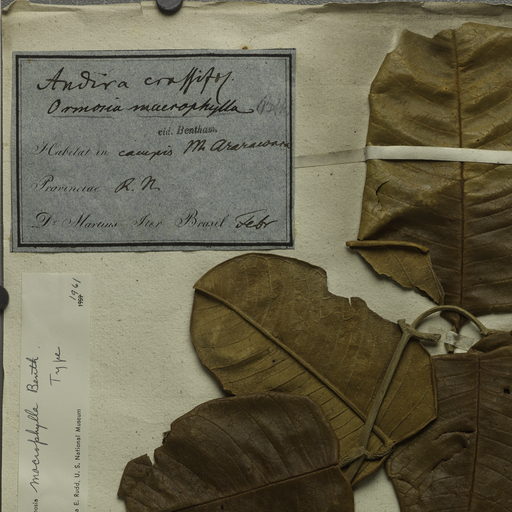 Andira crassifol.
Ormosia macrophylla
vid. Bentham.
Habitat in campis M. Araracoara
Provinciae R. N.
Dr. Martius Iter Brasil. Febr
macrophylla Benth.
Type
E. Rudd, U. S. National Museum
1961